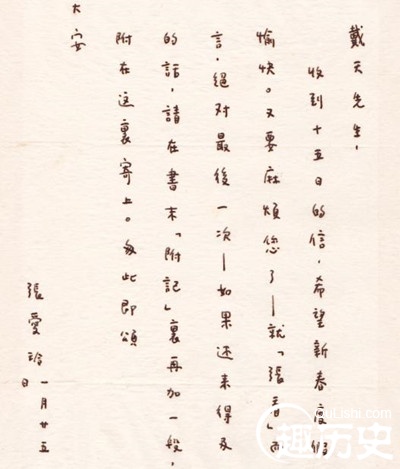 戴天先生,
收到十五日的信,希望新春度假
愉快。又要麻煩您了—就「張看」
言,絕对最後一次—如果还来得及
的話,請在書末「附記」裏再加一段,
附在这裏寄上。匆此即頌
大安
張愛玲 一月廿五
日
趣历史